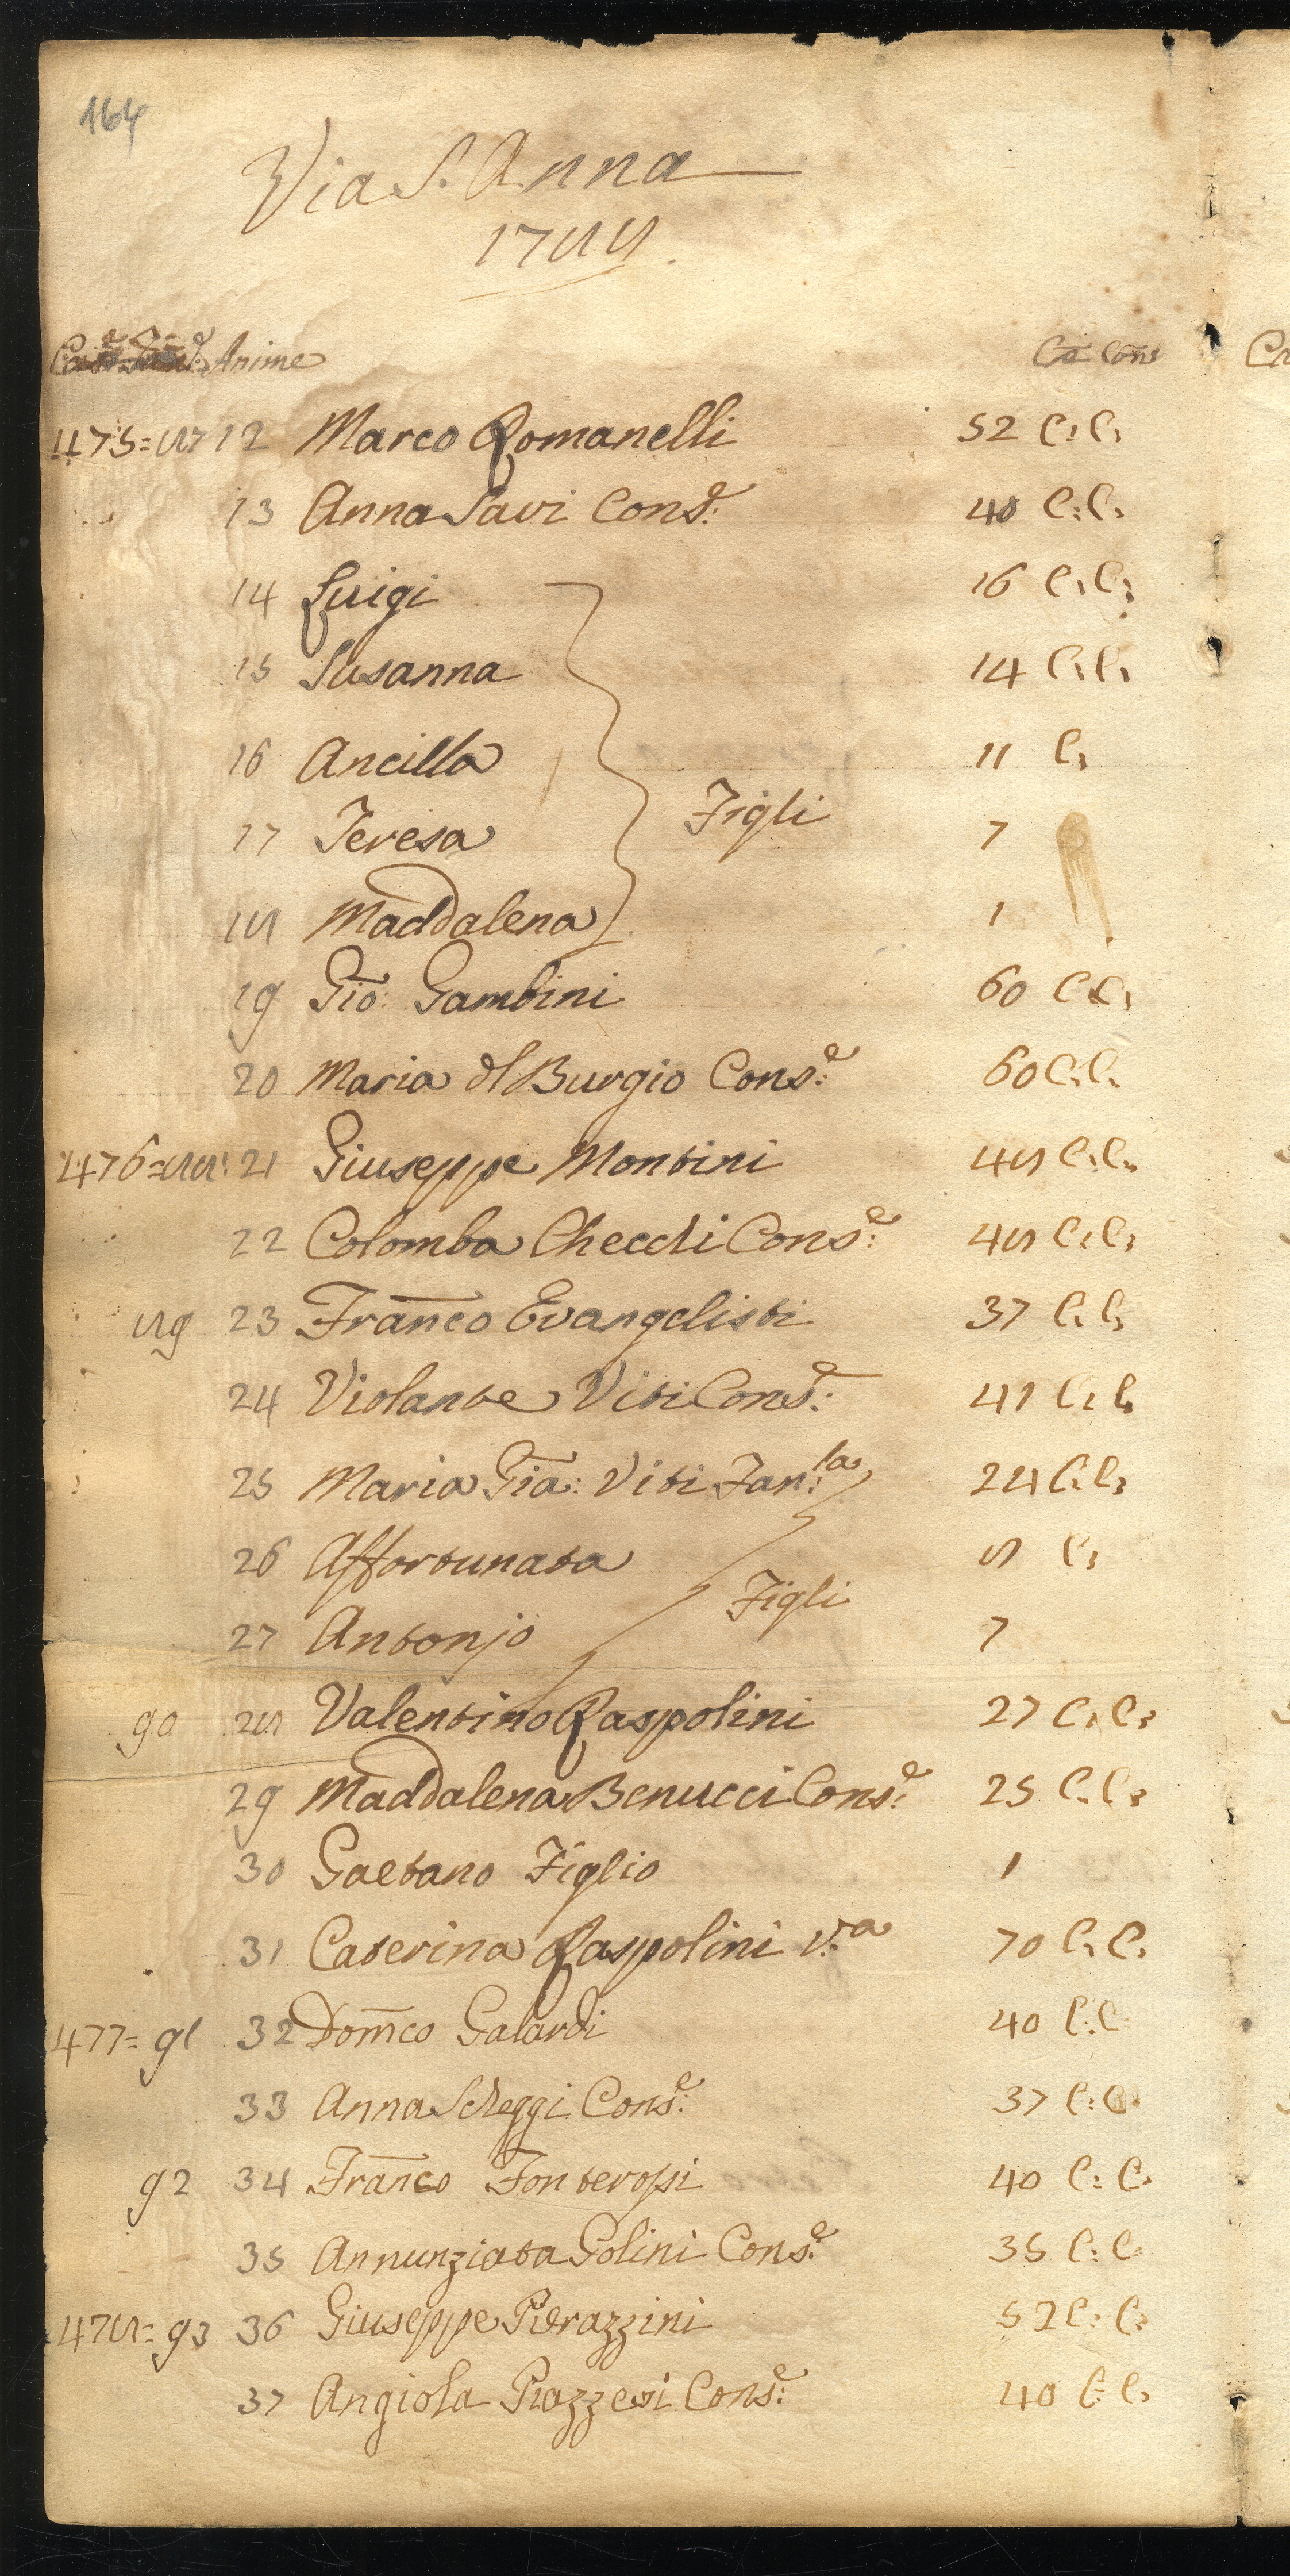 164
Via S. Anna
1788.
Case Fam.e Anime Età Com
475=87 12 Marco Romanelli 52 C: C:
13 Anna Savi Cons.e: 40 C: C:
14 Luigi 16 C: C:
15 Susanna 14 C: C:
16 Ancilla 11 C:
17 Teresa Figli 7
18 Maddalena 1
19 Gio: Gambini 60 C C:
20 Maria dl Burgio Cons.e: 60 C: C:
476=88: 21 Giuseppe Montini 48 C: C:
22 Colomba Checchi Cons.e: 48 C: C:
89 23 Franco Evangelisti 37 C: C:
24 Violante Viti Cons.e: 41 C: C:
25 Maria Gia: Viti Fan:la 24 C: C:
26 Affortunata 8 C:
Figli
27 Antonjo 7
90 28 Valentino Raspolini 27 C: C:
29 Maddalena Benucci Cons.e: 25 C: C:
30 Gaetano Figlio 1
31 Caterina Raspolini V.a 70 C: C:
477= 91 32 Domco Galardi 40 C: C
33 Anna Scheggi Cons.e: 37 C: C
92 34 Franco Fonterossi 40 C: C:
35 Annunziata Golini Cons.e: 35 C: C
478= 93 36 Giuseppe Pierazzini 52 C: C:
37 Angiola Piazzesi Cons.e: 40 C: C: